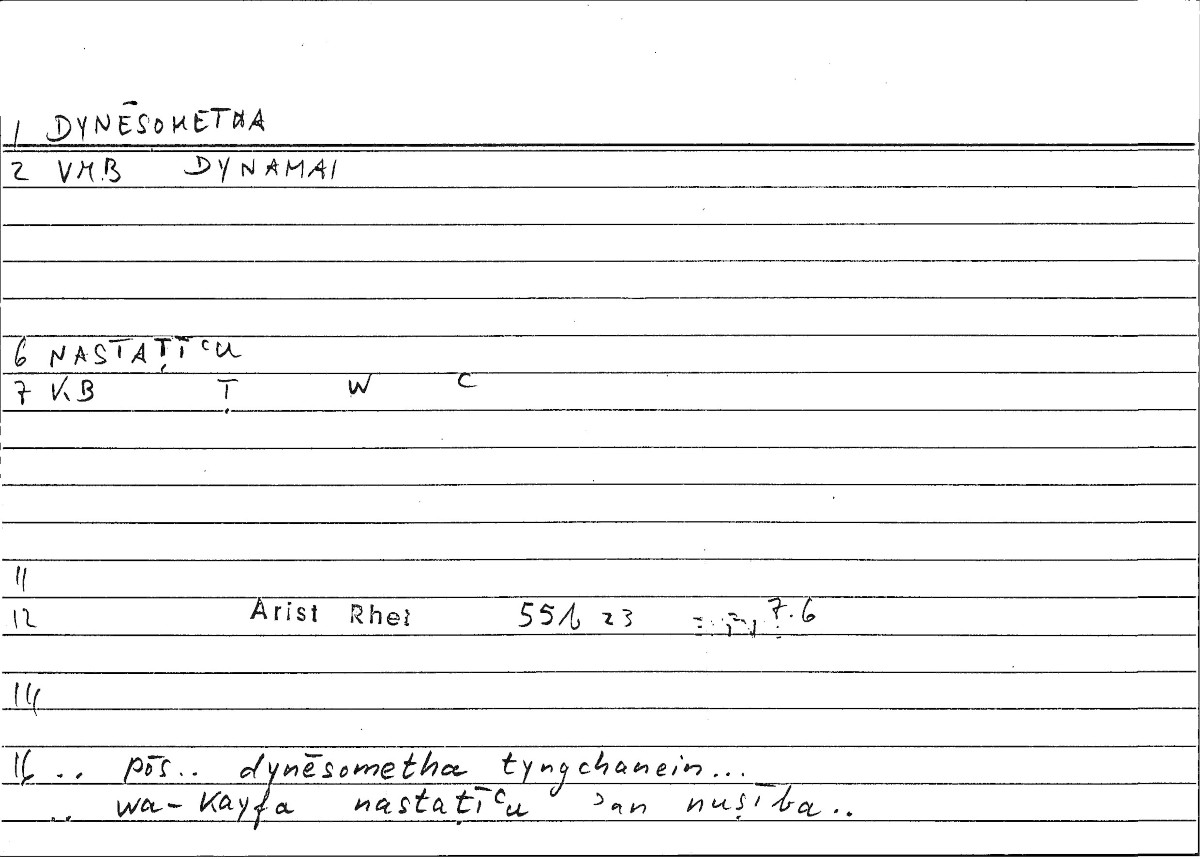 1 DYNĒSOMETHA
2 VMB DYNAMAI
6 NASTAṬĪʿU
7 VB Ṭ W ʿ
11
12 Arist Rhet 55b 23 7.6
14
16 .. pōs.. dynēsometha tyngchanein...
.. wa-Kayfa nastaṭīʿu ʾan nuṣība..